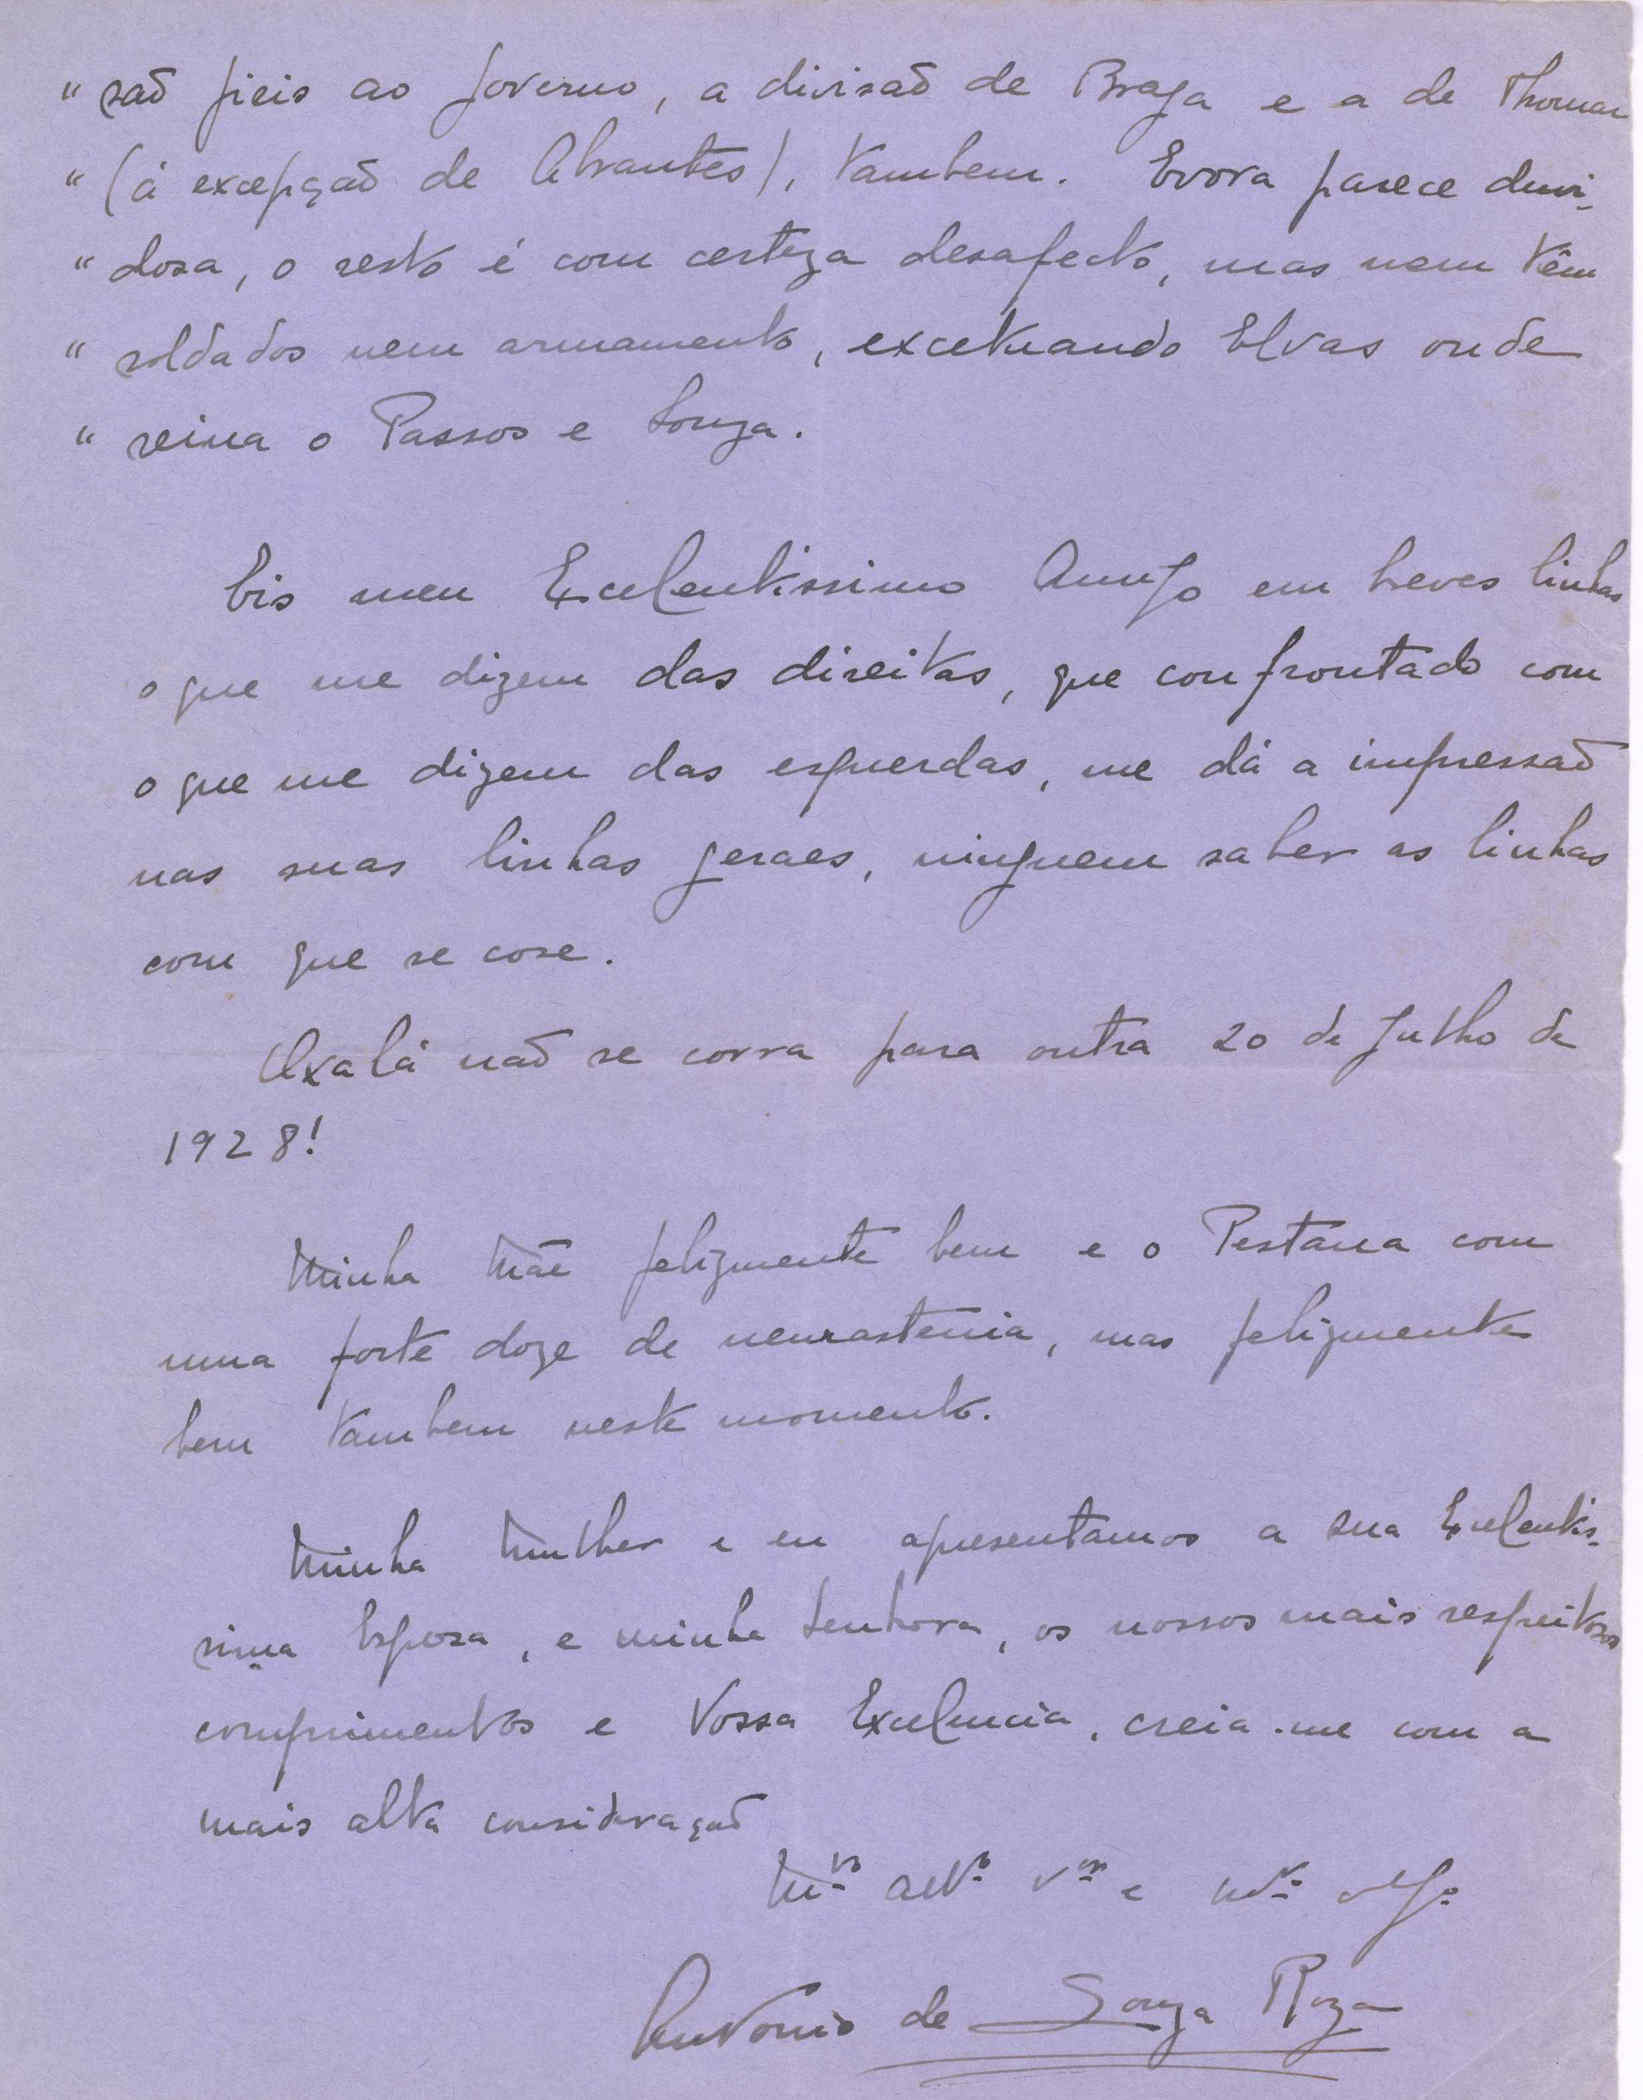 " são fieis ao governo, a divisão de Braga e a de Thomar
" (á excepção de Abrantes), tambem. Evora parece duvi-
" dosa, o resto é com certeza desafecto, mas nem têm
" soldados nem armamento, excetuando Elvas onde
" reina o Passos e Souza.
Eis meu Excelentissimo Amigo em breves linhas
o que me dizem das direitas, que confrontado com
o que me dizem das esquerdas, me dá a impressão
nas suas linhas geraes, ninguem saber as linhas
com que se cose.
Oxalá não se corra para outra 20 de Julho de
1928!
Minha Mãe felizmente bem e o Pestana com
uma forte doze de neurastenia, mas felizmente
bem tambem neste momento.
Minha Mulher e eu apresentamos a sua Excelentis-
sima Esposa, e minha Senhora, os nossos mais respeitosos
comprimentos e Vossa Excelencia, creia-me com a
mais alta consideração
Mto attº vor e
Antonio de Souza Roza